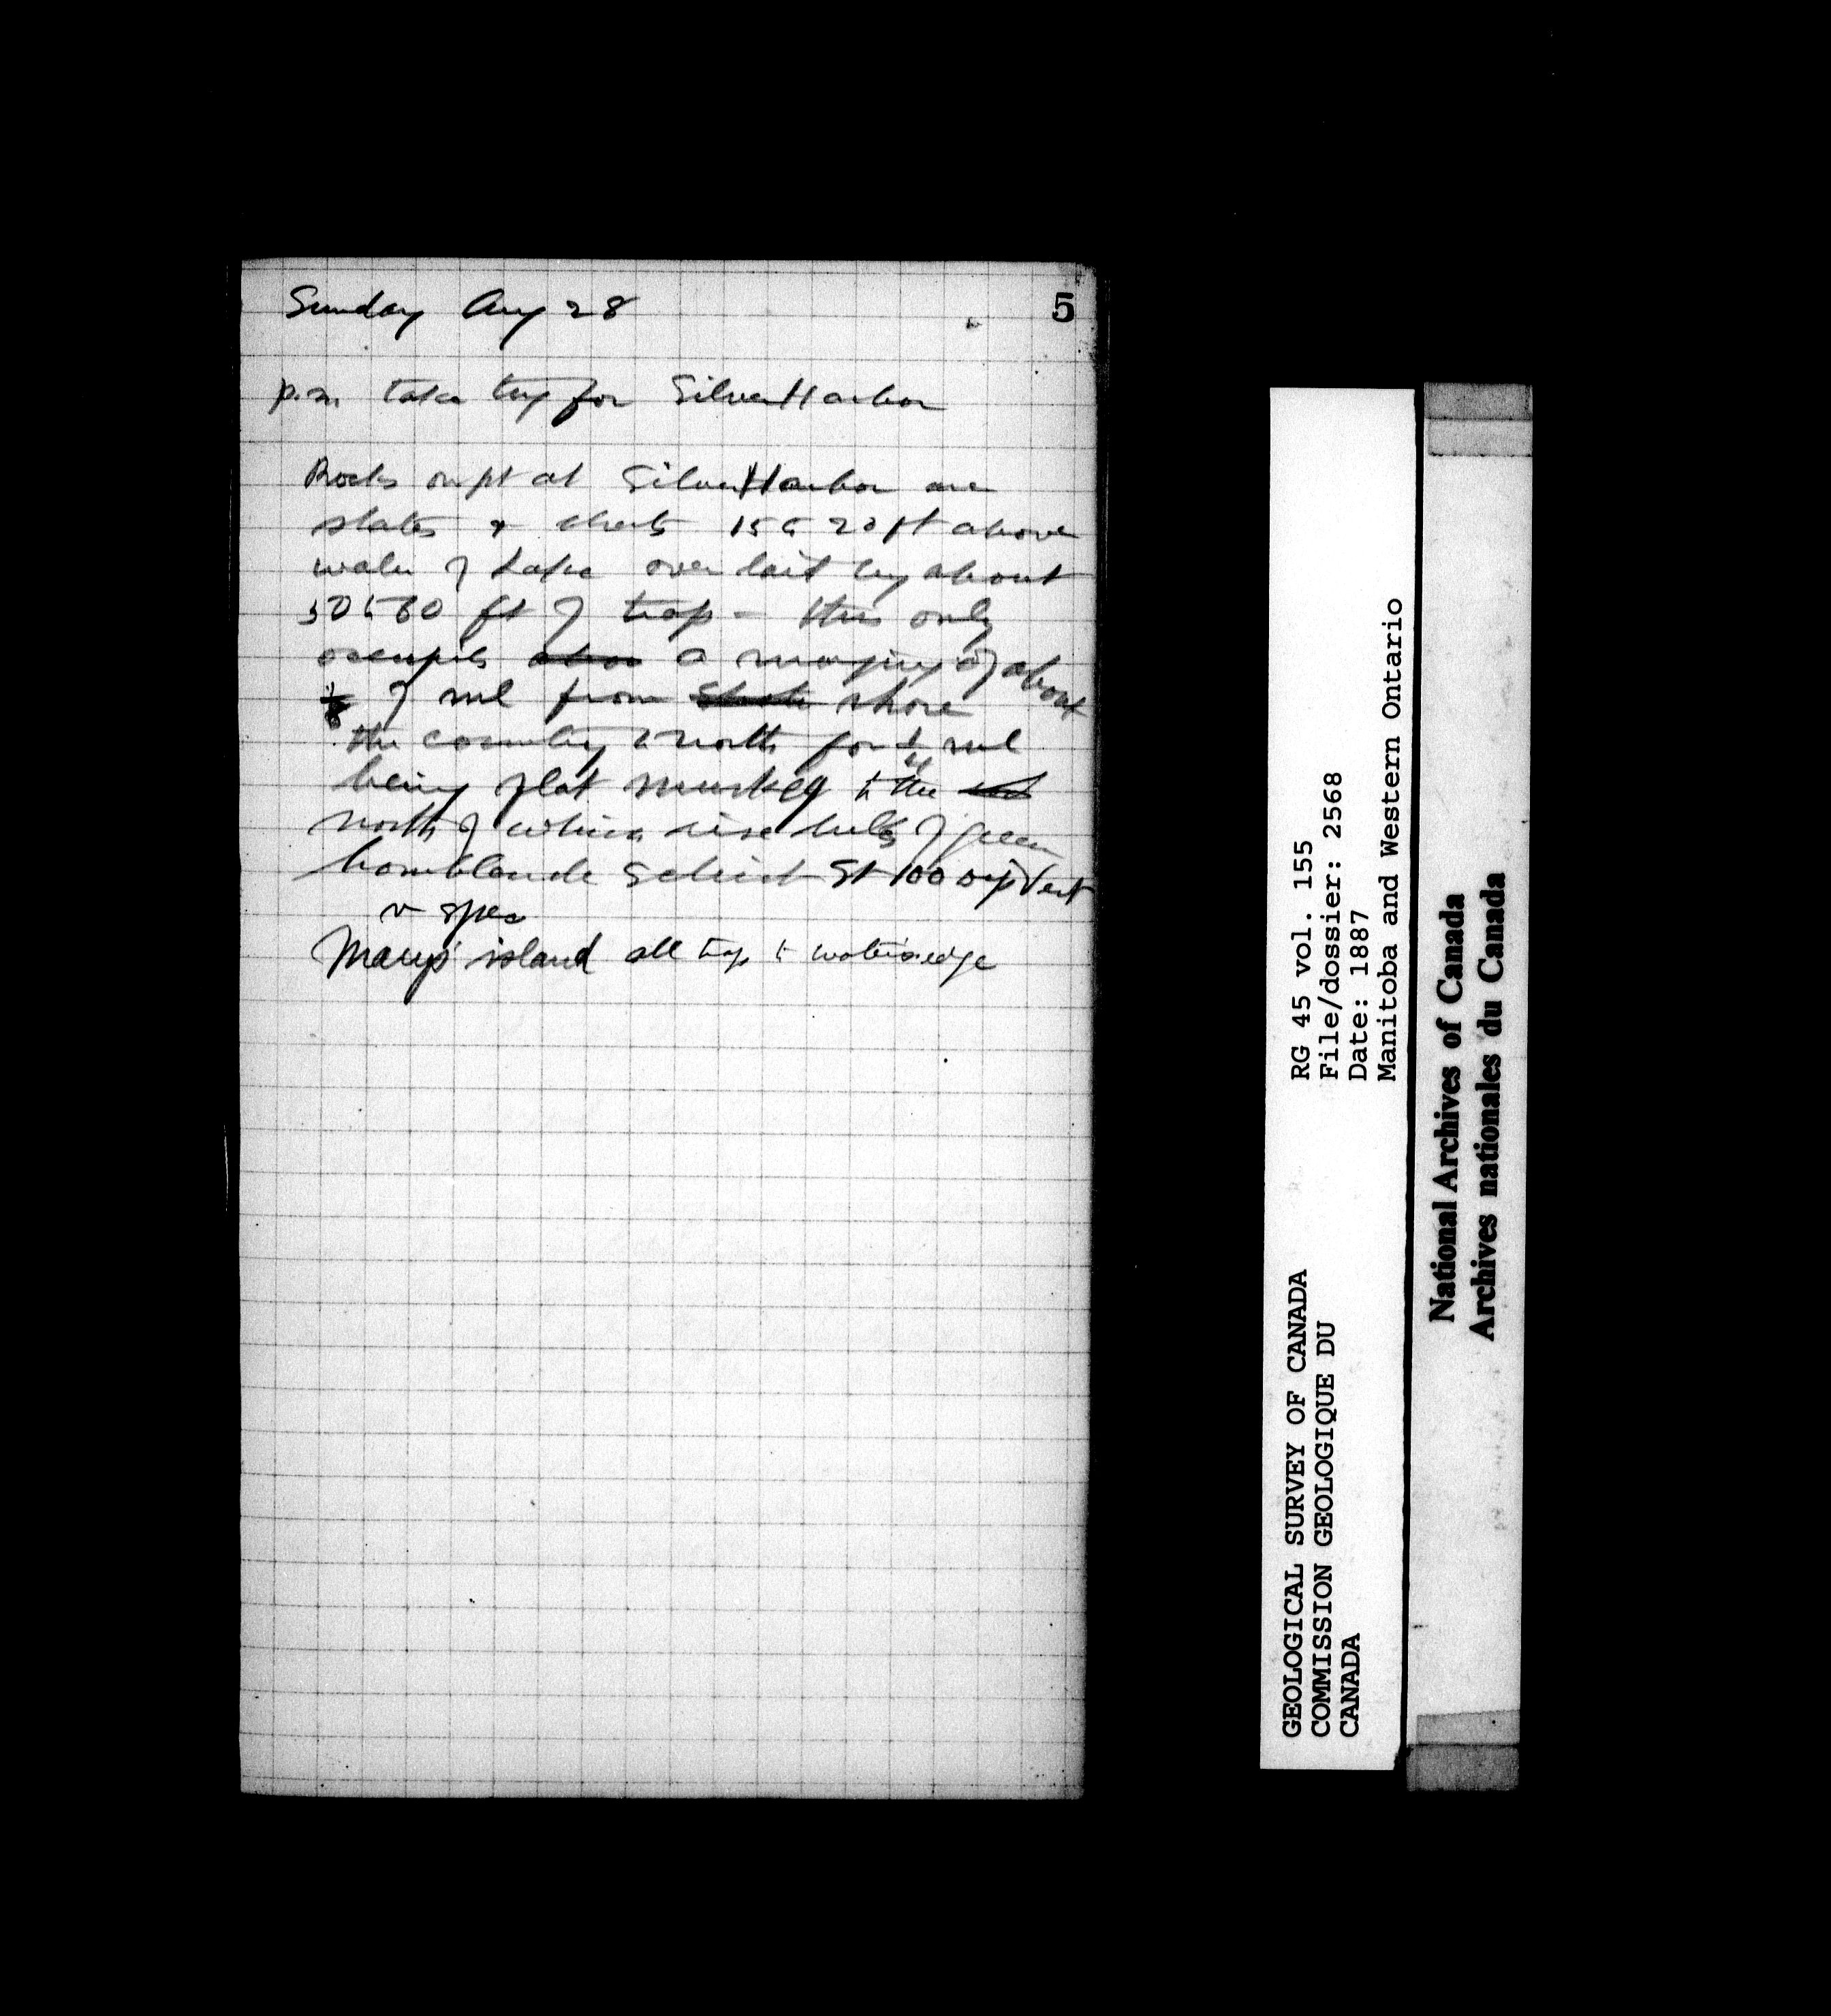 Sunday Aug 28
5
p.m. take tug for Silver Harbor
Rocks on pt at Silver Harbor are
slates & cherts 15 to 20 ft above
water of Lake over laid by about
50 to 60 ft of trap - this only
occupies a margin of about
1/8 of ml from shore
the country to north for 1/4 ml
being flat muskeg to the
north of which rise hills of green
hornblende Schist St 100 Dip Vert
v spec
Mary's island all trap to water's edge
RG 45 vol. 155
File/dossier: 2568
Date: 1887
Manitoba and Western Ontario
GEOLOGICAL SURVEY OF CANADA
COMMISSION GEOLOGIQUE DU
CANADA
National Archives of Canada
Archives nationales du Canada